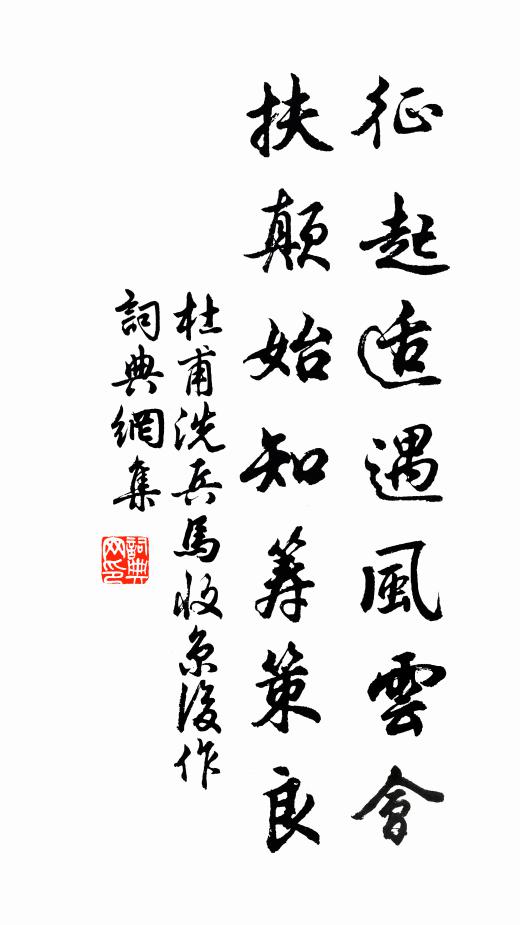 征起适遇風雲會
扶顛始知籌策良
杜甫洗兵馬收京後作
詞典網集
詞典網印